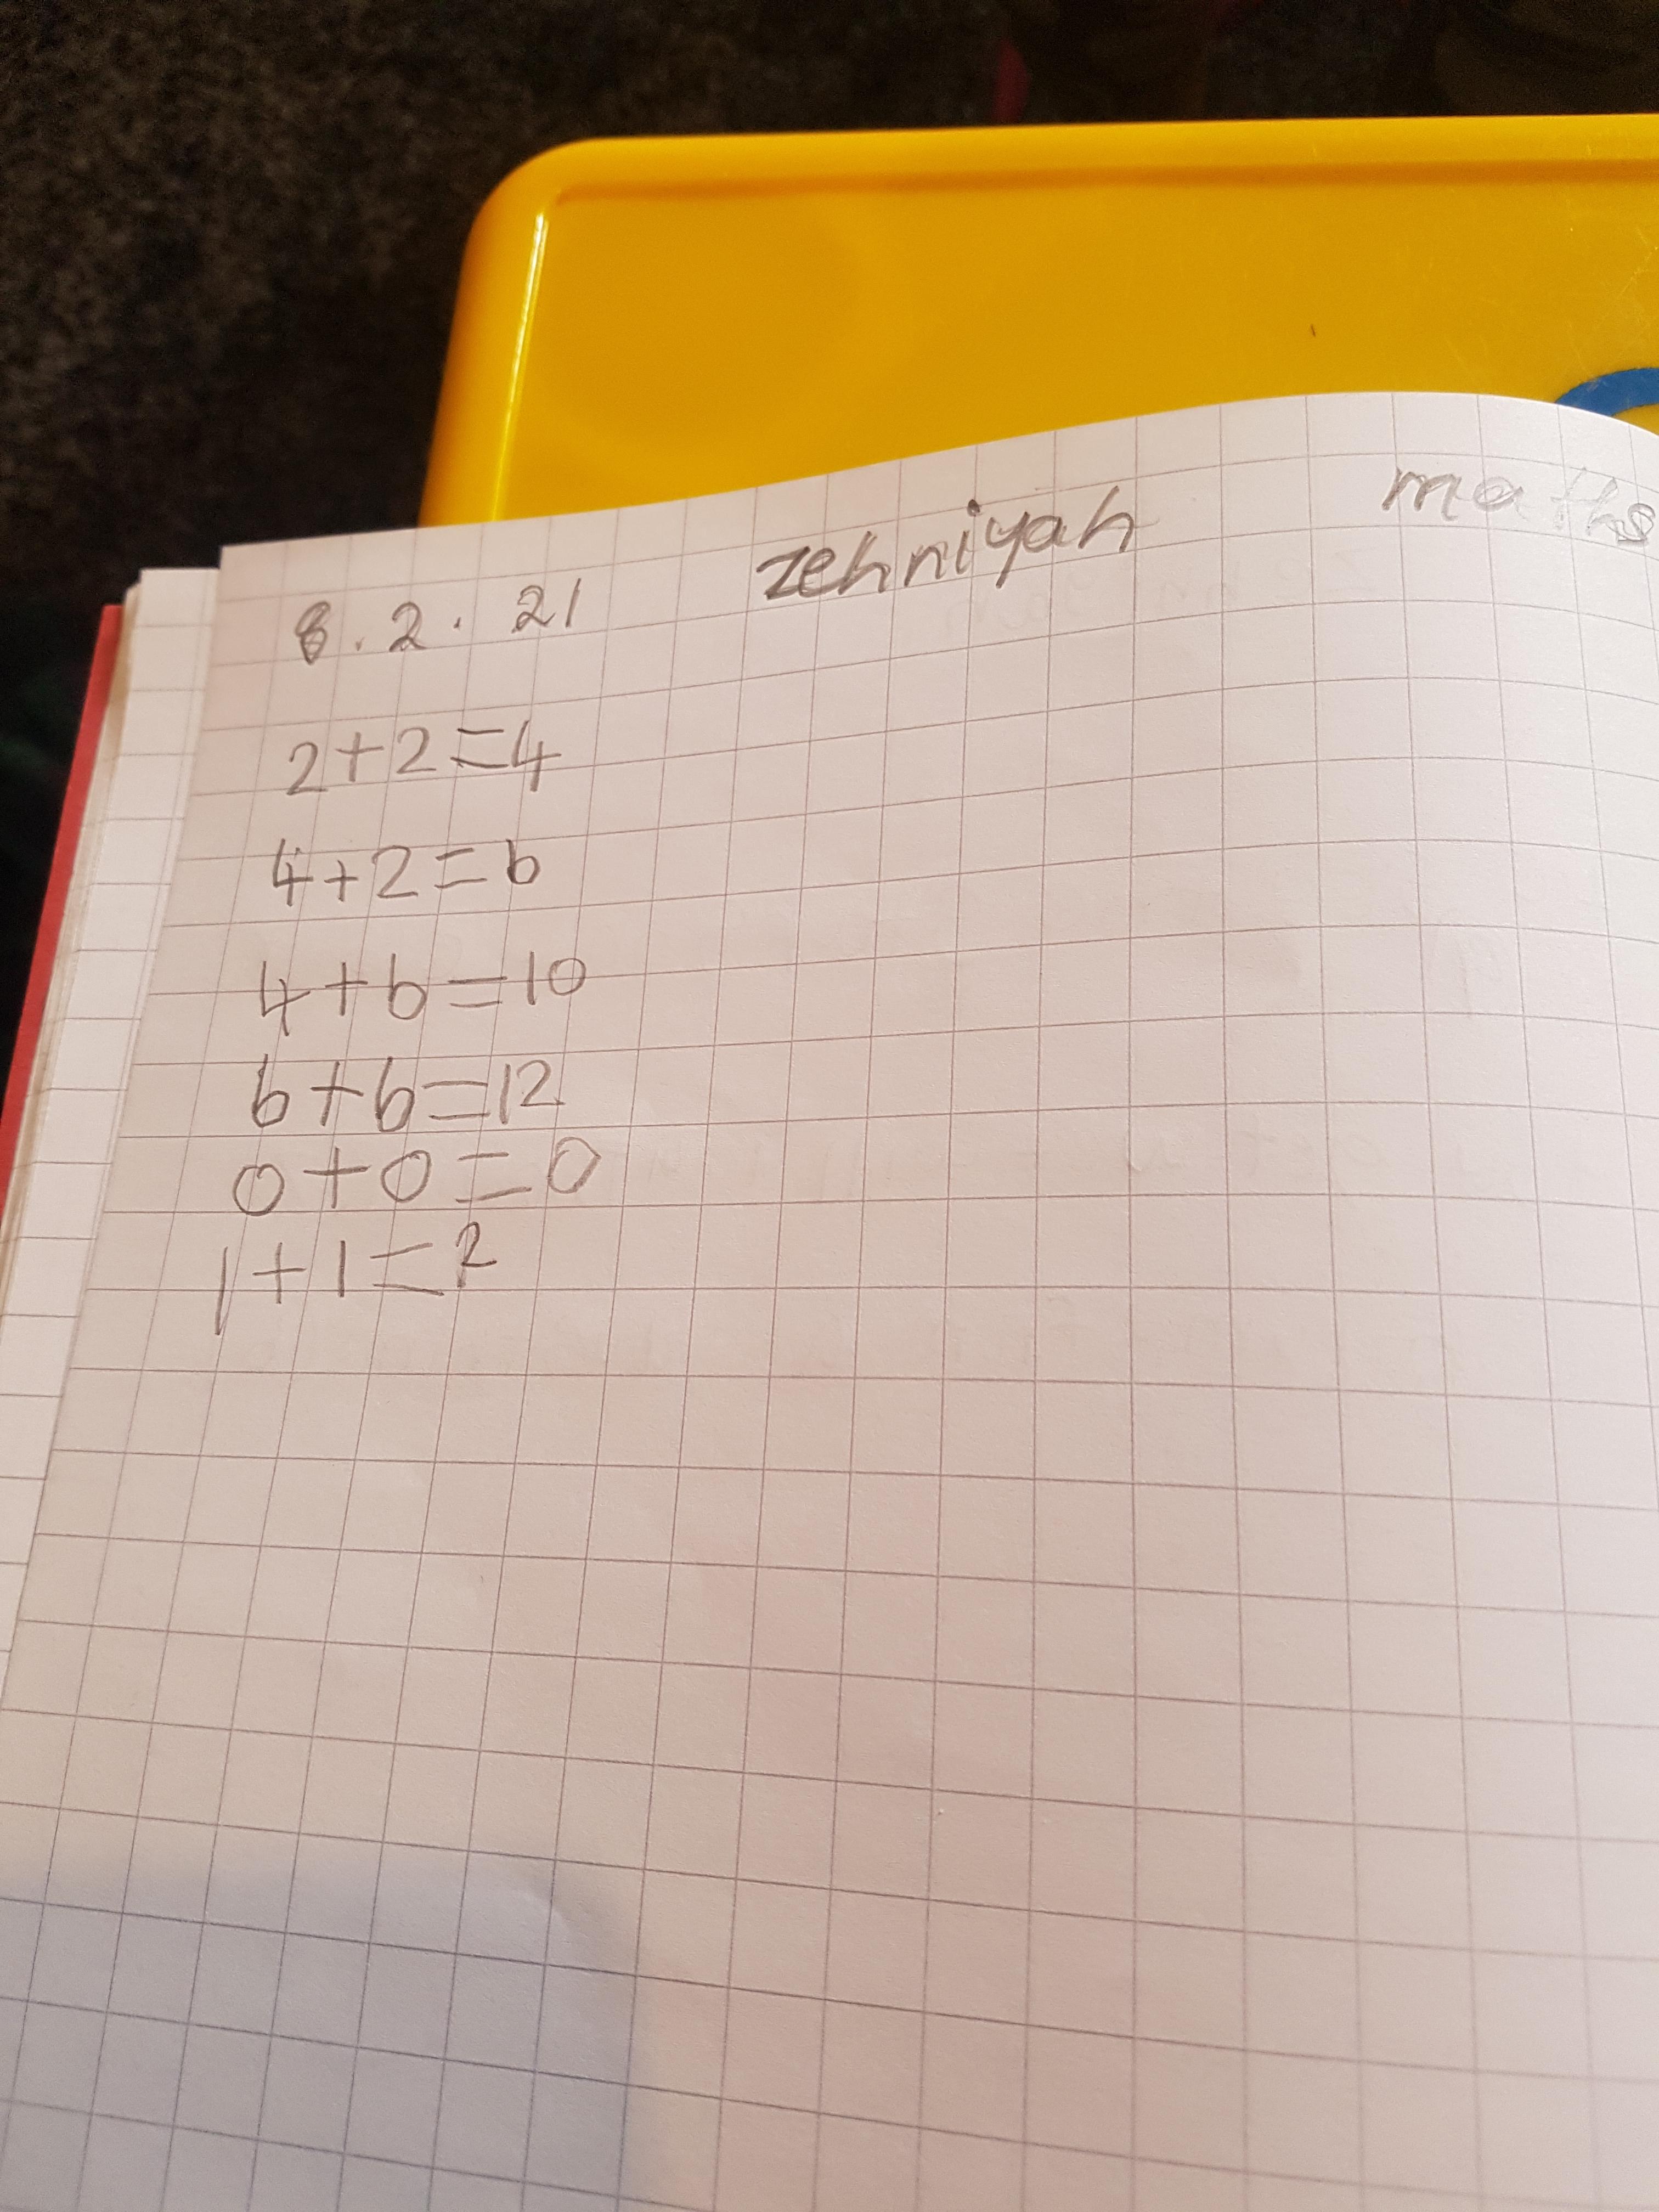 8.2.21 zehniyah maths
2+2=4
4+2=6
4+6=10
6+6=12
0+0=0
1+1=2